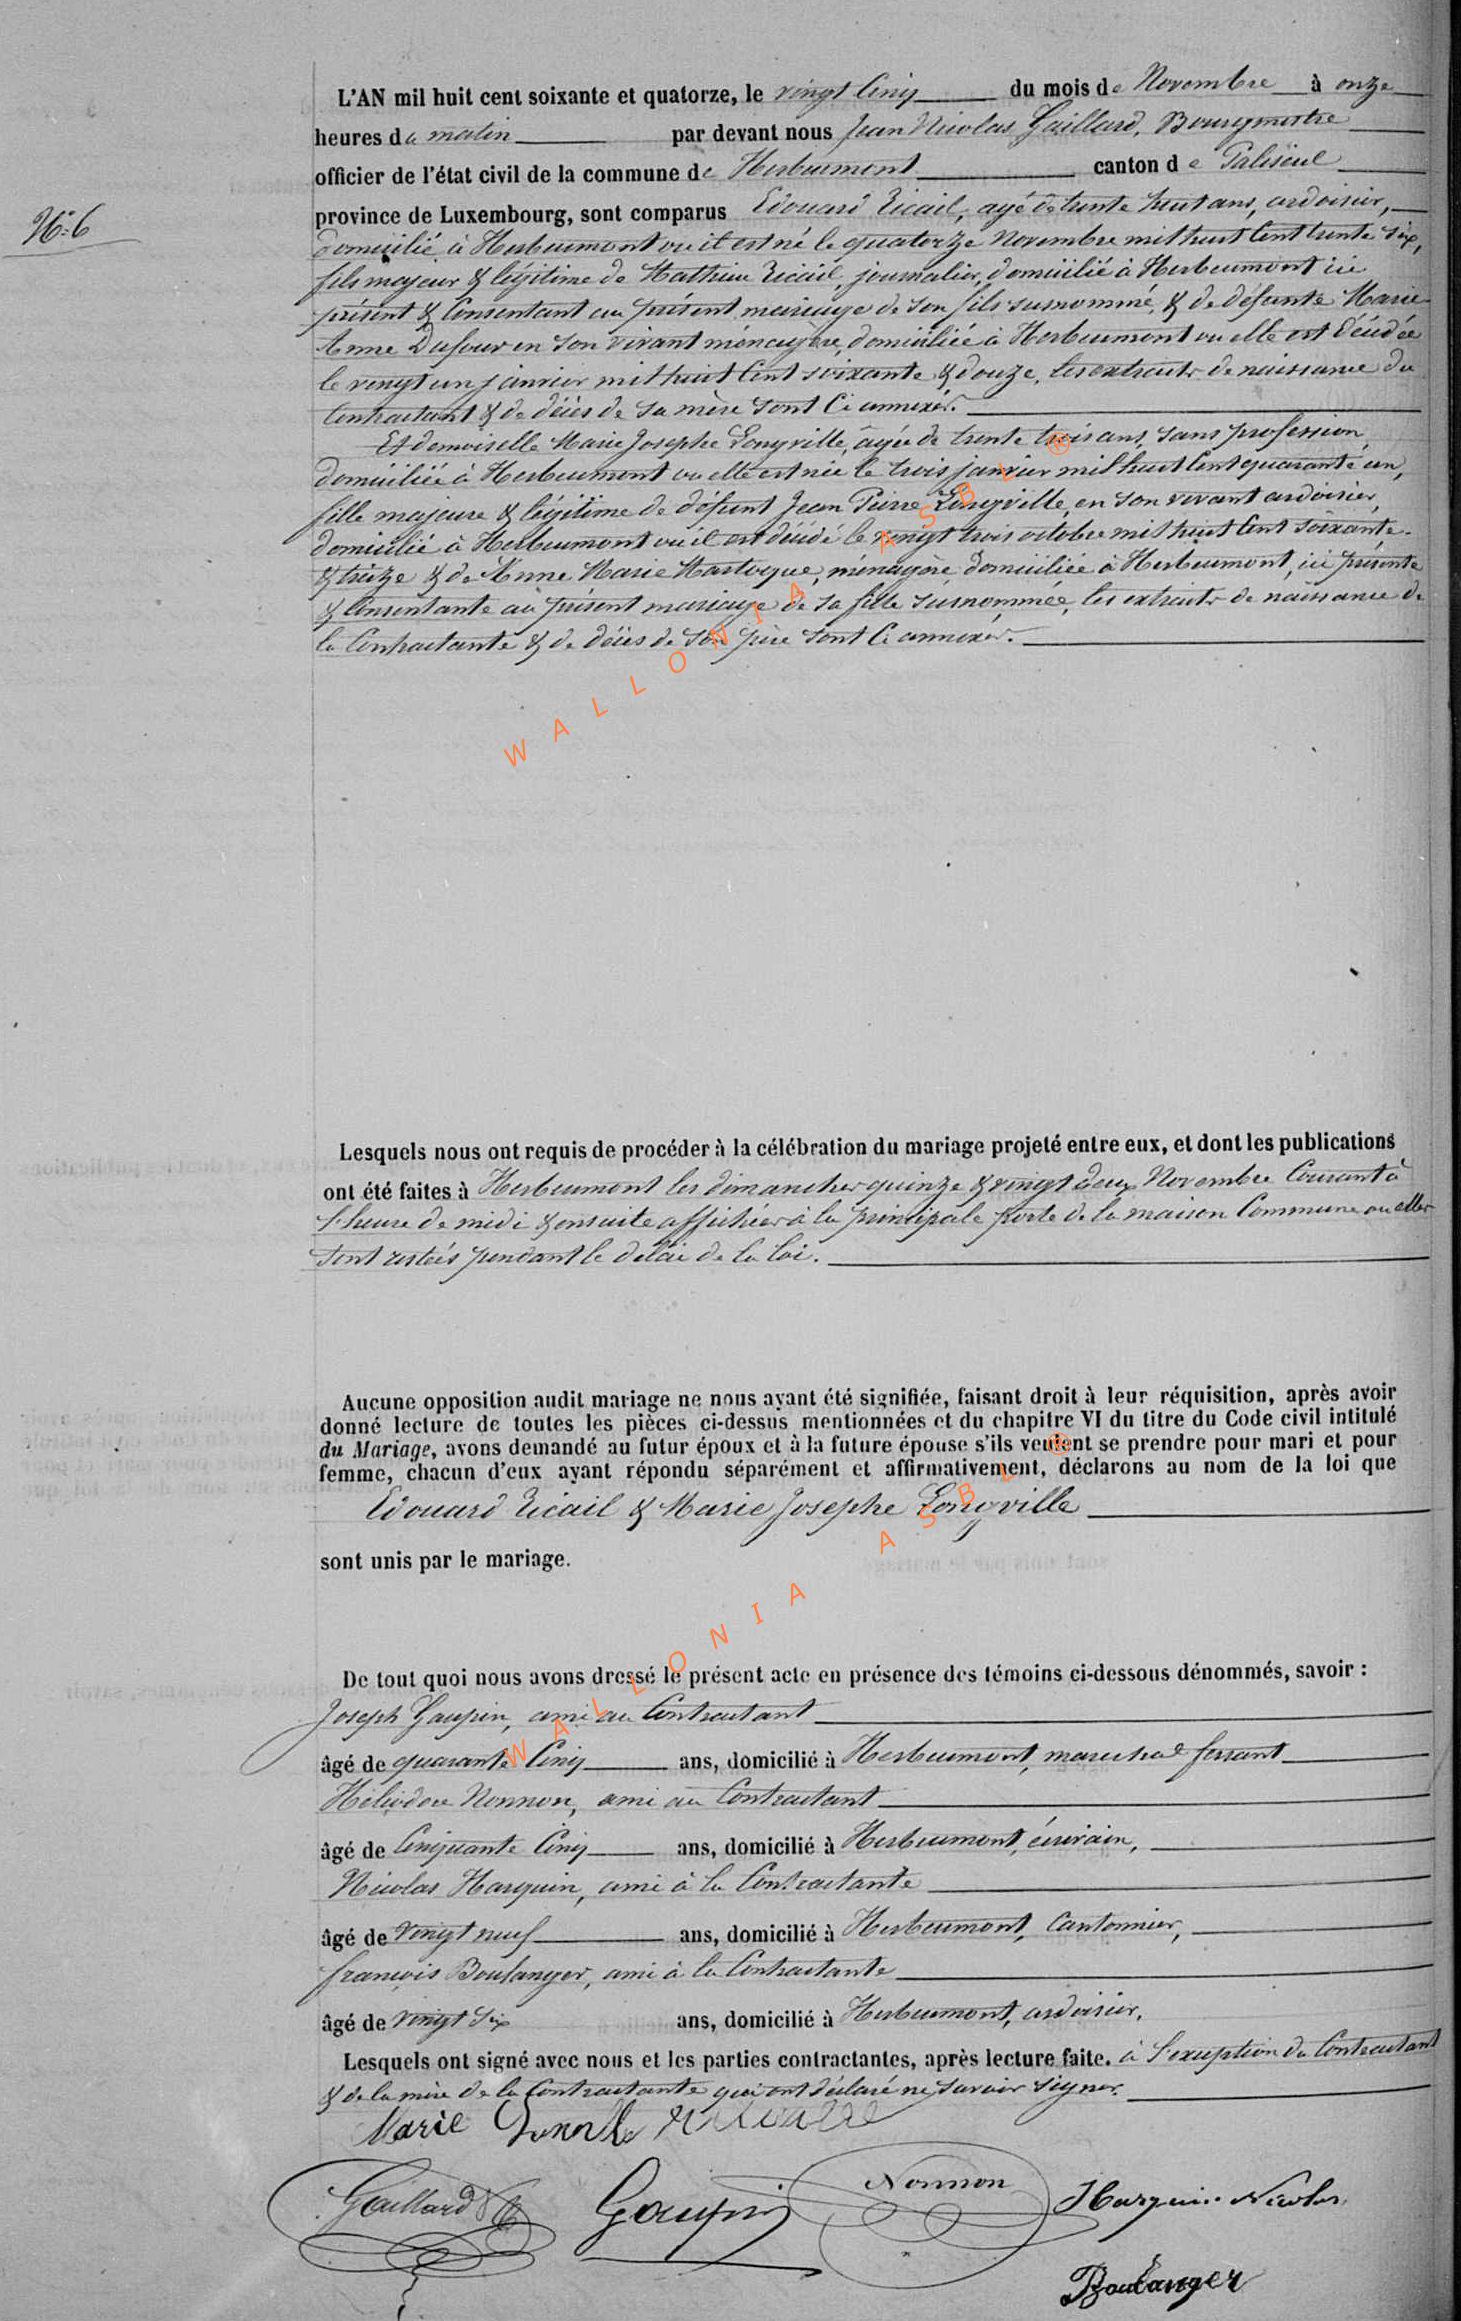 L'AN mil huit cent soixante et quatorze, le vingt Cinq du mois de Novembre à onze
heures du matin par devant nous Jean Nicolas Gaillard, Bourgmestre
officier de l'état civil de la commune de Herbeumont canton de Paliseul
N° 6
province de Luxembourg, sont comparus Edouard Ticail, agé de trente huit ans, ardoisier,
domicilié à Herbeumont ou il est né le quatorze Novembre mil huit Cent trente six,
fils majeur & légitime de Mathieu Ticail, journalier, domicilié à Herbeumont ici
présent & Consentant au présent mariage de son fils susnommé, & de défunte Marie
Anne Dufour en son vivant ménagère, domiciliée à Herbeumont ou elle est décédée
le vingt un janvier mil huit Cent soixante & douze, les extraits de naissance du
Contractant & de décès de sa mère sont Ci annexés.
Et demoiselle Marie Josephe Longville, âgée de trente trois ans, sans profession,
domiciliée à Herbeumont ou elle est née le trois janvier mil huit Cent quarante un,
fille majeure & légitime de défunt Jean Pierre Longville, en son vivant ardoisier,
domicilié à Herbeumont ou il est décédé le vingt trois octobre mil huit Cent soixante
& treize & de Anne Marie Martoque, ménagère domiciliée à Herbeumont, ici présente
& Consentante au présent mariage de sa fille susnommée, les extraits de naissance de
la Contractante & de décès de son père sont Ci annexés.
WALLONIA ASBL ®
Lesquels nous ont requis de procéder à la célébration du mariage projeté entre eux, et dont les publications
ont été faites à Herbeumont les dimanches quinze & vingt deux Novembre Courant à
l'heure de midi & ensuite affichées à la principale porte de la maison Commune ou elles
sont restées pendant le délai de la loi.
Aucune opposition audit mariage ne nous ayant été signifiée, faisant droit à leur réquisition, après avoir
donné lecture de toutes les pièces ci-dessus mentionnées et du chapitre VI du titre du Code civil intitulé
du Mariage, avons demandé au futur époux et à la future épouse s'ils veulent se prendre pour mari et pour
femme, chacun d'eux ayant répondu séparément et affirmativement, déclarons au nom de la loi que
Edouard Ticail & Marie Josephe Longville
sont unis par le mariage.
WALLONIA ASBL ®
De tout quoi nous avons dressé le présent acte en présence des témoins ci-dessous dénommés, savoir :
Joseph Gaupin, ami au Contractant
âgé de quarante Cinq ans, domicilié à Herbeumont, marechal ferrant
Héliodore Nonnon, ami au Contractant
âgé de Cinquante Cinq ans, domicilié à Herbeumont, écrivain,
Nicolas Harquin, ami à la Contractante
âgé de vingt neuf ans, domicilié à Herbeumont, Cantonnier,
françois Boulanger, ami à la Contractante
âgé de vingt Six ans, domicilié à Herbeumont, ardoisier.
Lesquels ont signé avec nous et les parties contractantes, après lecture faite. à l'exception du Contractant
& de la mère de la Contractante qui ont déclaré ne savoir signer.
Marie
Gaillard Gaupin Nonnon Harquin Nicolas
Boulanger